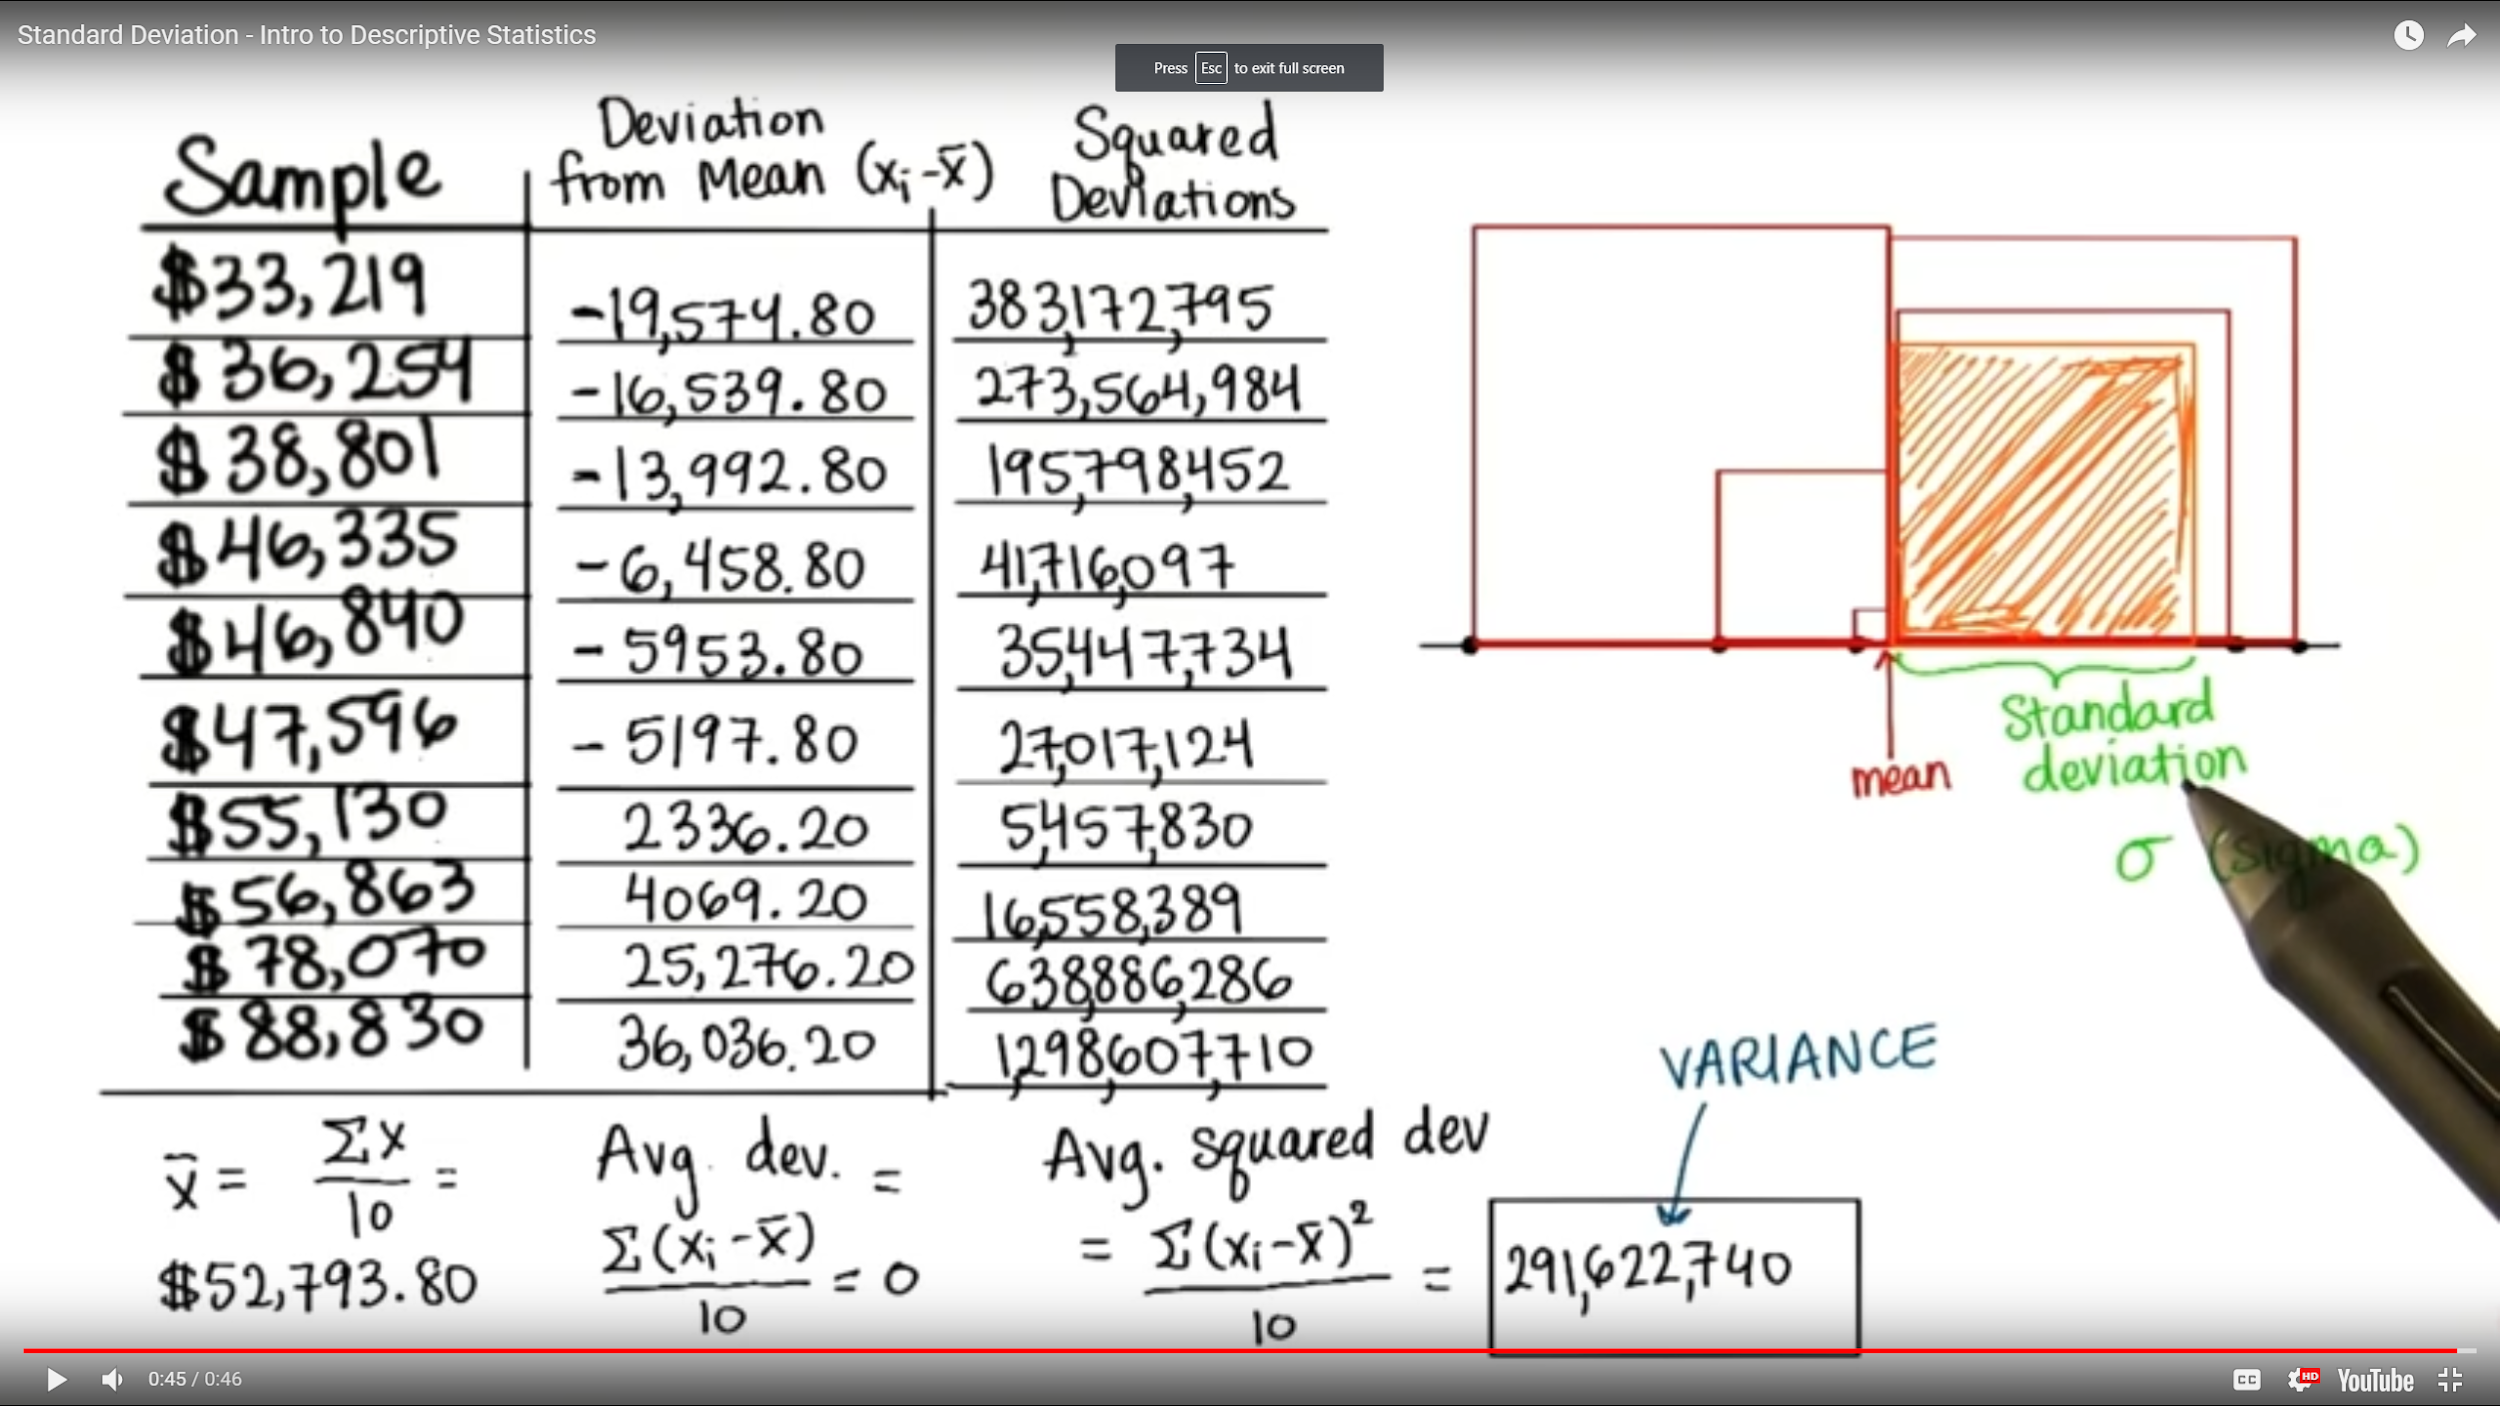 Standard Deviation - Intro to Descriptive Statistics
Press Esc to exit full screen
Sample
Deviation
from Mean (xᵢ-x̄)
Squared
Deviations
$33,219 -19,574.80 383,172,795
$36,254 -16,539.80 273,564,984
$38,801 -13,992.80 195,798,452
$46,335 -6,458.80 41,716,097
$46,840 -5953.80 35,447,734
$47,596 -5197.80 27,017,124
$55,130 2336.20 5,457,830
$56,863 4069.20 16,558,389
$78,070 25,276.20 638,886,286
$88,830 36,036.20 1,298,607,710
x̄ = Σx / 10 =
$52,793.80
Avg. dev. =
Σ(xᵢ-x̄) / 10 = 0
Avg. squared dev
= Σ(xᵢ-x̄)² / 10 = 291,622,740
VARIANCE
mean
Standard
deviation
σ (sigma)
0:45 / 0:46
CC
HD
YouTube